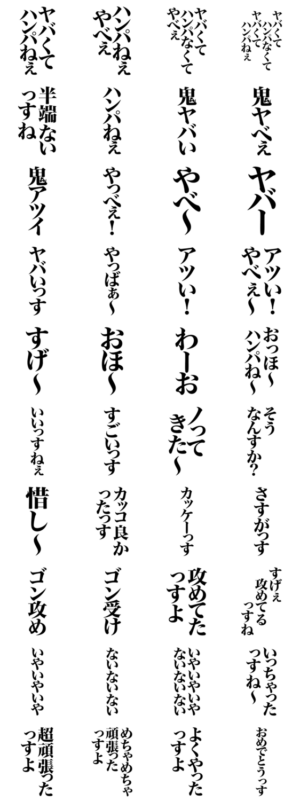 ヤバくて
ハンパねぇ
ハンパねぇ
やべぇ
ヤバくて
ハンパなくて
やべぇ
ヤバくて
ハンパなくて
ヤバくて
ハンパねぇ
半端ない
っすね
ハンパねぇ
鬼ヤバい
鬼ヤベぇ
鬼アツイ
やっべぇ！
やべ〜
ヤバー
ヤバいっす
やっばぁ〜
アツい！
アツい！
やべぇ〜
すげ〜
おほ〜
わーお
おっほ〜
ハンパね〜
いいっすねぇ
すごいっす
ノって
きた〜
そう
なんすか？
惜し〜
カッコ良か
ったっす
カッケーっす
さすがっす
ゴン攻め
ゴン受け
攻めてた
っすよ
すげぇ
攻めてる
っすね
いやいやいや
ないないない
いやいやいや
ないないない
いっちゃった
っすね〜
超頑張った
っすよ
めちゃめちゃ
頑張った
っすよ
よくやった
っすよ
おめでとうっす